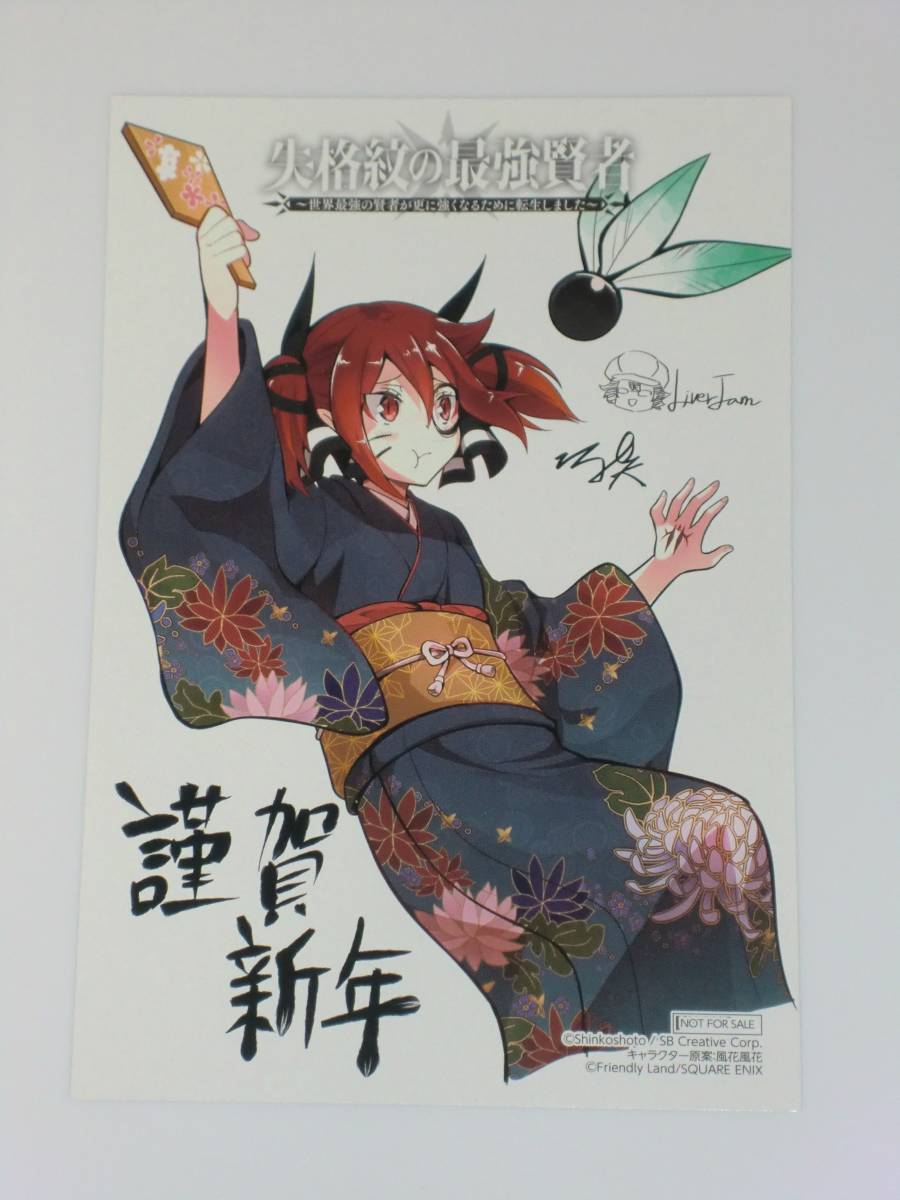 失格紋の最強賢者
～世界最強の賢者が更に強くなるために転生しました～
LiverJam
謹賀
新年
NOT FOR SALE
©Shinkoshoto / SB Creative Corp.
キャラクター原案:風花風花
©Friendly Land/SQUARE ENIX